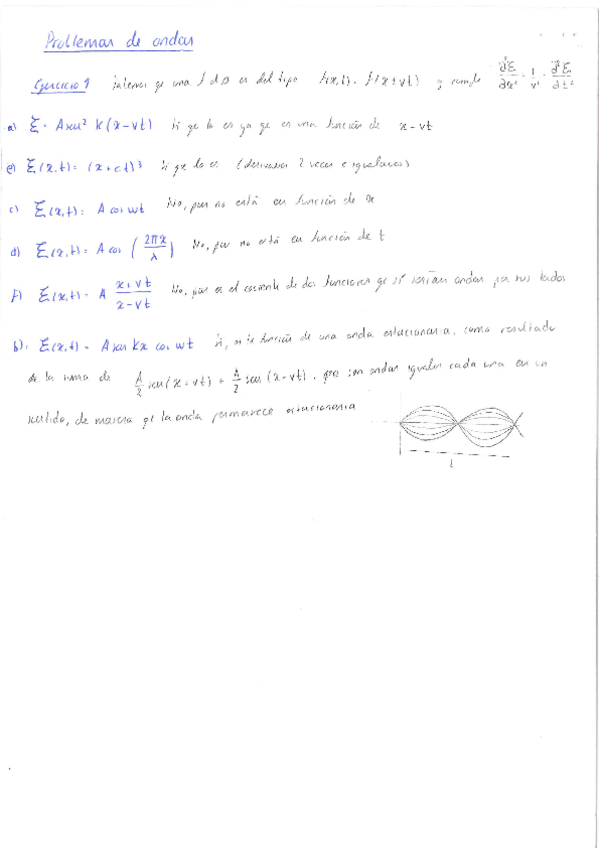 Problemas de ondas
Ejercicio 1 una f d o es del tipo f(x,t) = f(x±vt) y cumple ∂²ξ/∂x² = 1/v² · ∂²ξ/∂t²
a) ξ = A sen² k(x-vt) Si qe lo es ya qe es una función de x-vt
e) ξ(x,t) = (x+ct)³ Si qe lo es (derivamos 2 veces e igualamos)
c) ξ(x,t) = A cos wt No, pues no está en función de x
d) ξ(x,t) = A cos (2πx/λ) No, pq no está en función de t
f) ξ(x,t) = A x+vt/x-vt No, pues es el cociente de dos funciones qe sí serían ondas por sus lados
b) ξ(x,t) = A sen kx cos wt Si, es la función de una onda estacionaria, como resultado
de la suma de A/2 sen(x+vt) + A/2 sen(x-vt), que son ondas iguales cada una en un
sentido, de manera qe la onda permanece estacionaria
l